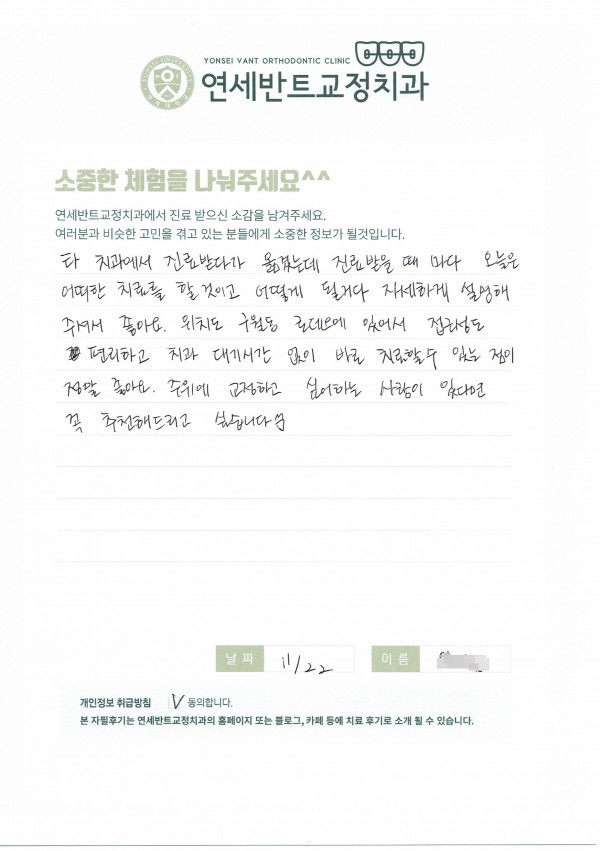 YONSEI VANT ORTHODONTIC CLINIC
YONSEI UNIVERSITY
연세반트교정치과
소중한 체험을 나눠주세요^^
연세반트교정치과에서 진료 받으신 소감을 남겨주세요.
여러분과 비슷한 고민을 겪고 있는 분들에게 소중한 정보가 될것입니다.
타 치과에서 진료받다가 옮겼는데 진료받을 때 마다 오늘은
어떠한 치료를 할 것이고 어떻게 될거다 자세하게 설명해
주셔서 좋아요. 위치도 구월동 로데오에 있어서 접근성도
편리하고 치과 대기시간 없이 바로 치료할수 있는 점이
정말 좋아요. 주위에 교정하고 싶어하는 사람이 있다면
꼭 추천해드리고 싶습니다
날 짜 11/22 이 름
개인정보 취급방침 V 동의합니다.
본 자필후기는 연세반트교정치과의 홈페이지 또는 블로그, 카페 등에 치료 후기로 소개 될 수 있습니다.